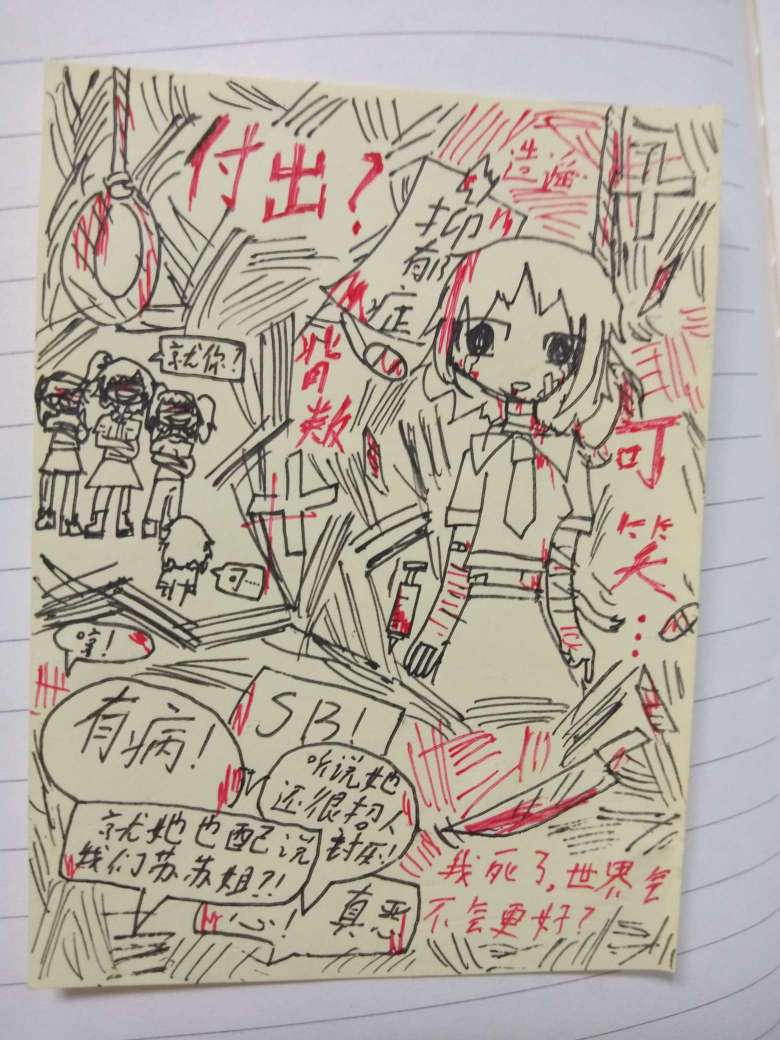 付出？
造谣
抑
郁
症
就你？
背
叛
可
笑
…
可……
有病！
SB！
听说她
还很招人
讨厌！
就她也配说
我们苏苏姐？！
真恶
心！
我死了，世界会
不会更好？